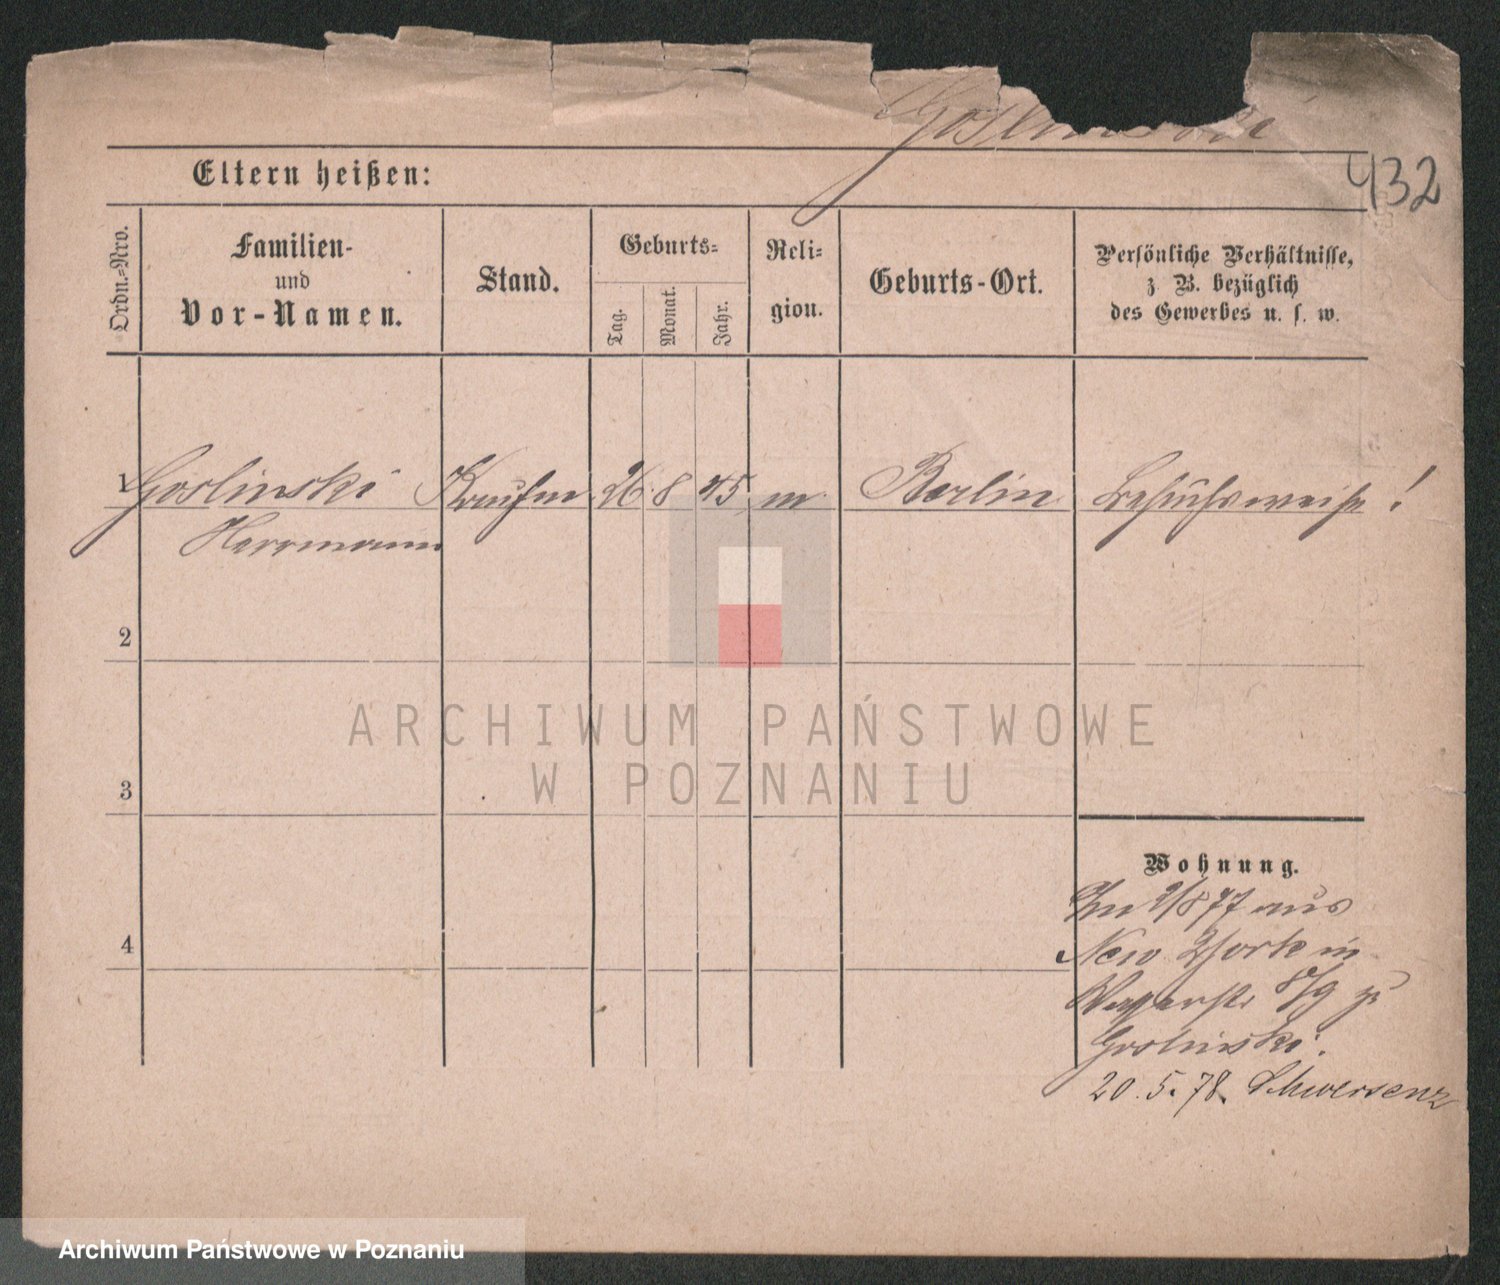 Goslinski
432
Eltern heißen:
Ordn.=Nro.
Familien-
und
Vor-Namen.
Stand.
Geburts=
Tag.
Monat.
Jahr.
Reli=
gion.
Geburts-Ort.
Persönliche Verhältnisse,
z B. bezüglich
des Gewerbes u. s. w.
1 Goslinski Kaufm 26 8 45 m Berlin Besuchsweise!
Herrmann
2
3
4
Wohnung.
2/8 77 aus
New York in
8/9 zu
Goslinski.
20. 5. 78. Schwersenz
ARCHIWUM PAŃSTWOWE
W POZNANIU
Archiwum Państwowe w Poznaniu